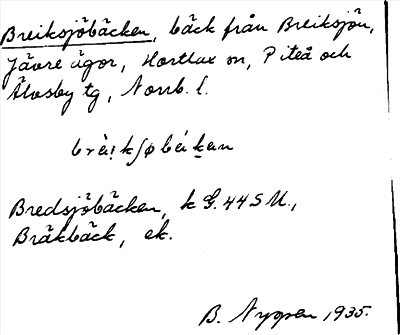 Breiksjöbäcken, bäck från Breiksjön,
Jävre ägor, Hortlax sn, Piteå och
Älvsby tg, Norrb. l.
Bredsjöbäcken, k G. 44 S U.,
Bräkbäck, ek.
B. Nygren 1935.